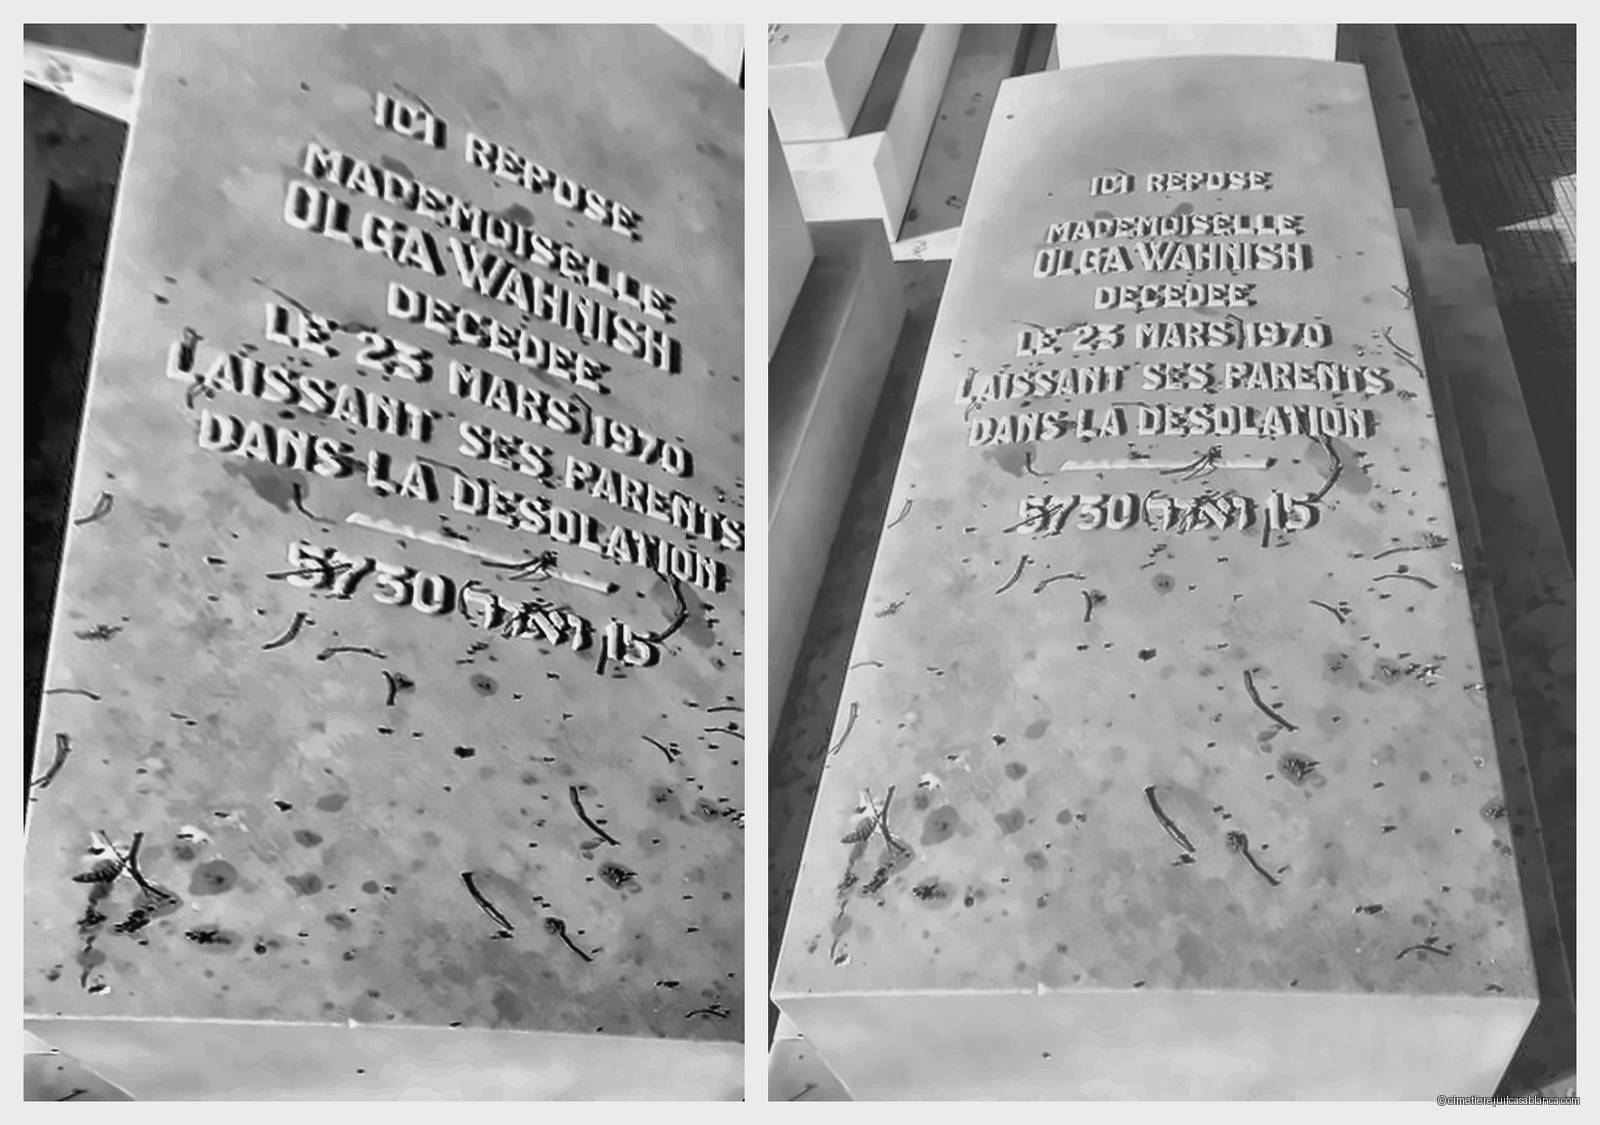 ICI REPOSE
MADEMOISELLE
OLGA WAHNISH
DECEDEE
LE 23 MARS 1970
LAISSANT SES PARENTS
DANS LA DESOLATION
15 ואדר 5730
ICI REPOSE
MADEMOISELLE
OLGA WAHNISH
DECEDEE
LE 23 MARS 1970
LAISSANT SES PARENTS
DANS LA DESOLATION
15 ואדר 5730
©cimetierejuifcasablanca.com